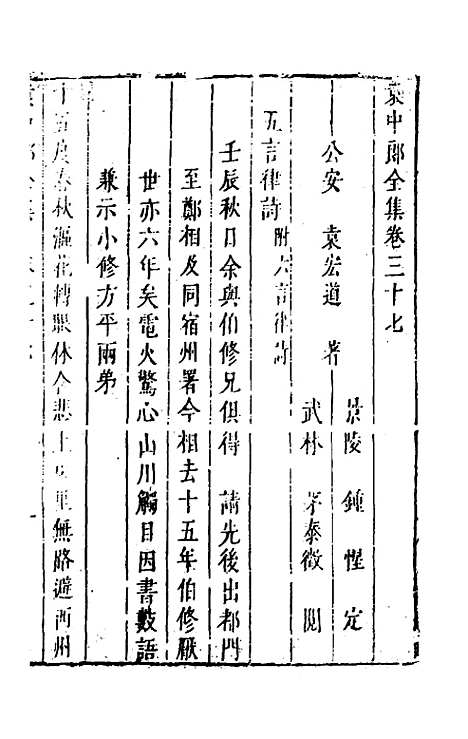 袁中郎全集卷三十七
公安 袁宏道 著
景陵 鍾惺 定
武林 茅泰徵 閱
五言律詩 附六言律詩
壬辰秋日余與伯修兄俱得 請先後出都門
至鄭相及同宿州署今相去十五年伯修厭
世亦六年矣電火驚心山川觸目因書數語
兼示小修方平兩弟
十五度春秋灑花轉眼休今悲十里無路避西州